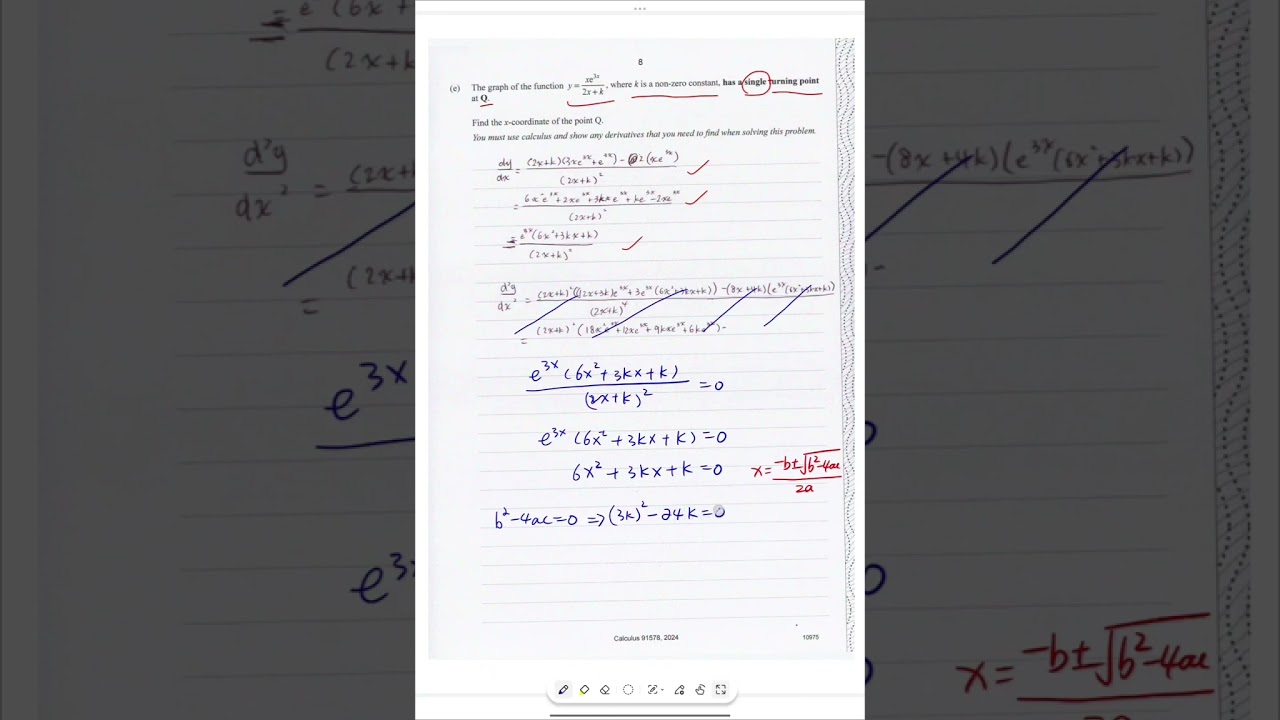 8
(e) The graph of the function y = xe^{3x}/(2x+k), where k is a non-zero constant, has a single turning point
at Q.
Find the x-coordinate of the point Q.
You must use calculus and show any derivatives that you need to find when solving this problem.
dy/dx = ((2x+k)(3xe^{3x}+e^{3x}) - 2(xe^{3x}))/(2x+k)²
= (6x²e^{3x}+2xe^{3x}+3kxe^{3x}+ke^{3x}-2xe^{3x})/(2x+k)²
= e^{3x}(6x²+3kx+k)/(2x+k)²
d²y/dx² = ((2x+k)²((12x+3k)e^{3x}+3e^{3x}(6x²+3kx+k))-(8x+4k)(e^{3x}(6x²+3kx+k)))/(2x+k)⁴
= (2x+k)²(18x²e^{3x}+12xe^{3x}+9kxe^{3x}+6ke^{3x})-
e^{3x}(6x²+3kx+k)/(2x+k)² = 0
e^{3x}(6x²+3kx+k)=0
6x²+3kx+k=0
x = (-b±√(b²-4ac))/2a
b²-4ac=0 ⇒ (3k)²-24k=0
Calculus 91578, 2024
10975